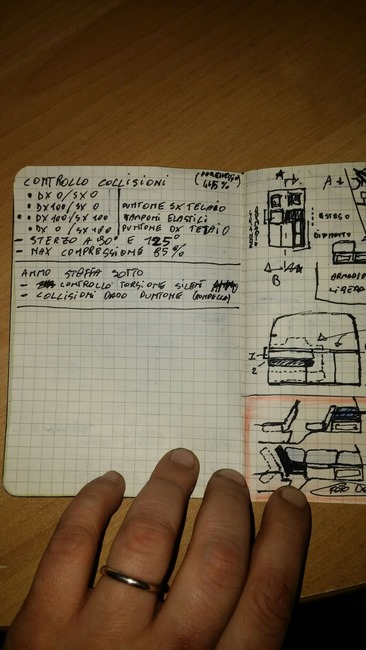 CONTROLLO COLLISIONI
• DX 0/SX 0
• DX 100/SX 0 PUNTONE SX TELAIO
• DX 100/SX 100 TAMPONI ELASTICI
• DX 0 / SX 100 PUNTONE DX TELAIO
- STERZO A 90° E 125°
- MAX COMPRESSIONE 85%
AMMO STAFFA SOTTO
- CONTROLLO TORSIONE SILENT
- COLLISIONI DADO PUNTONE
A
A
B
ESTESO
ARMADIO
LIBERO
1
2
FOTO